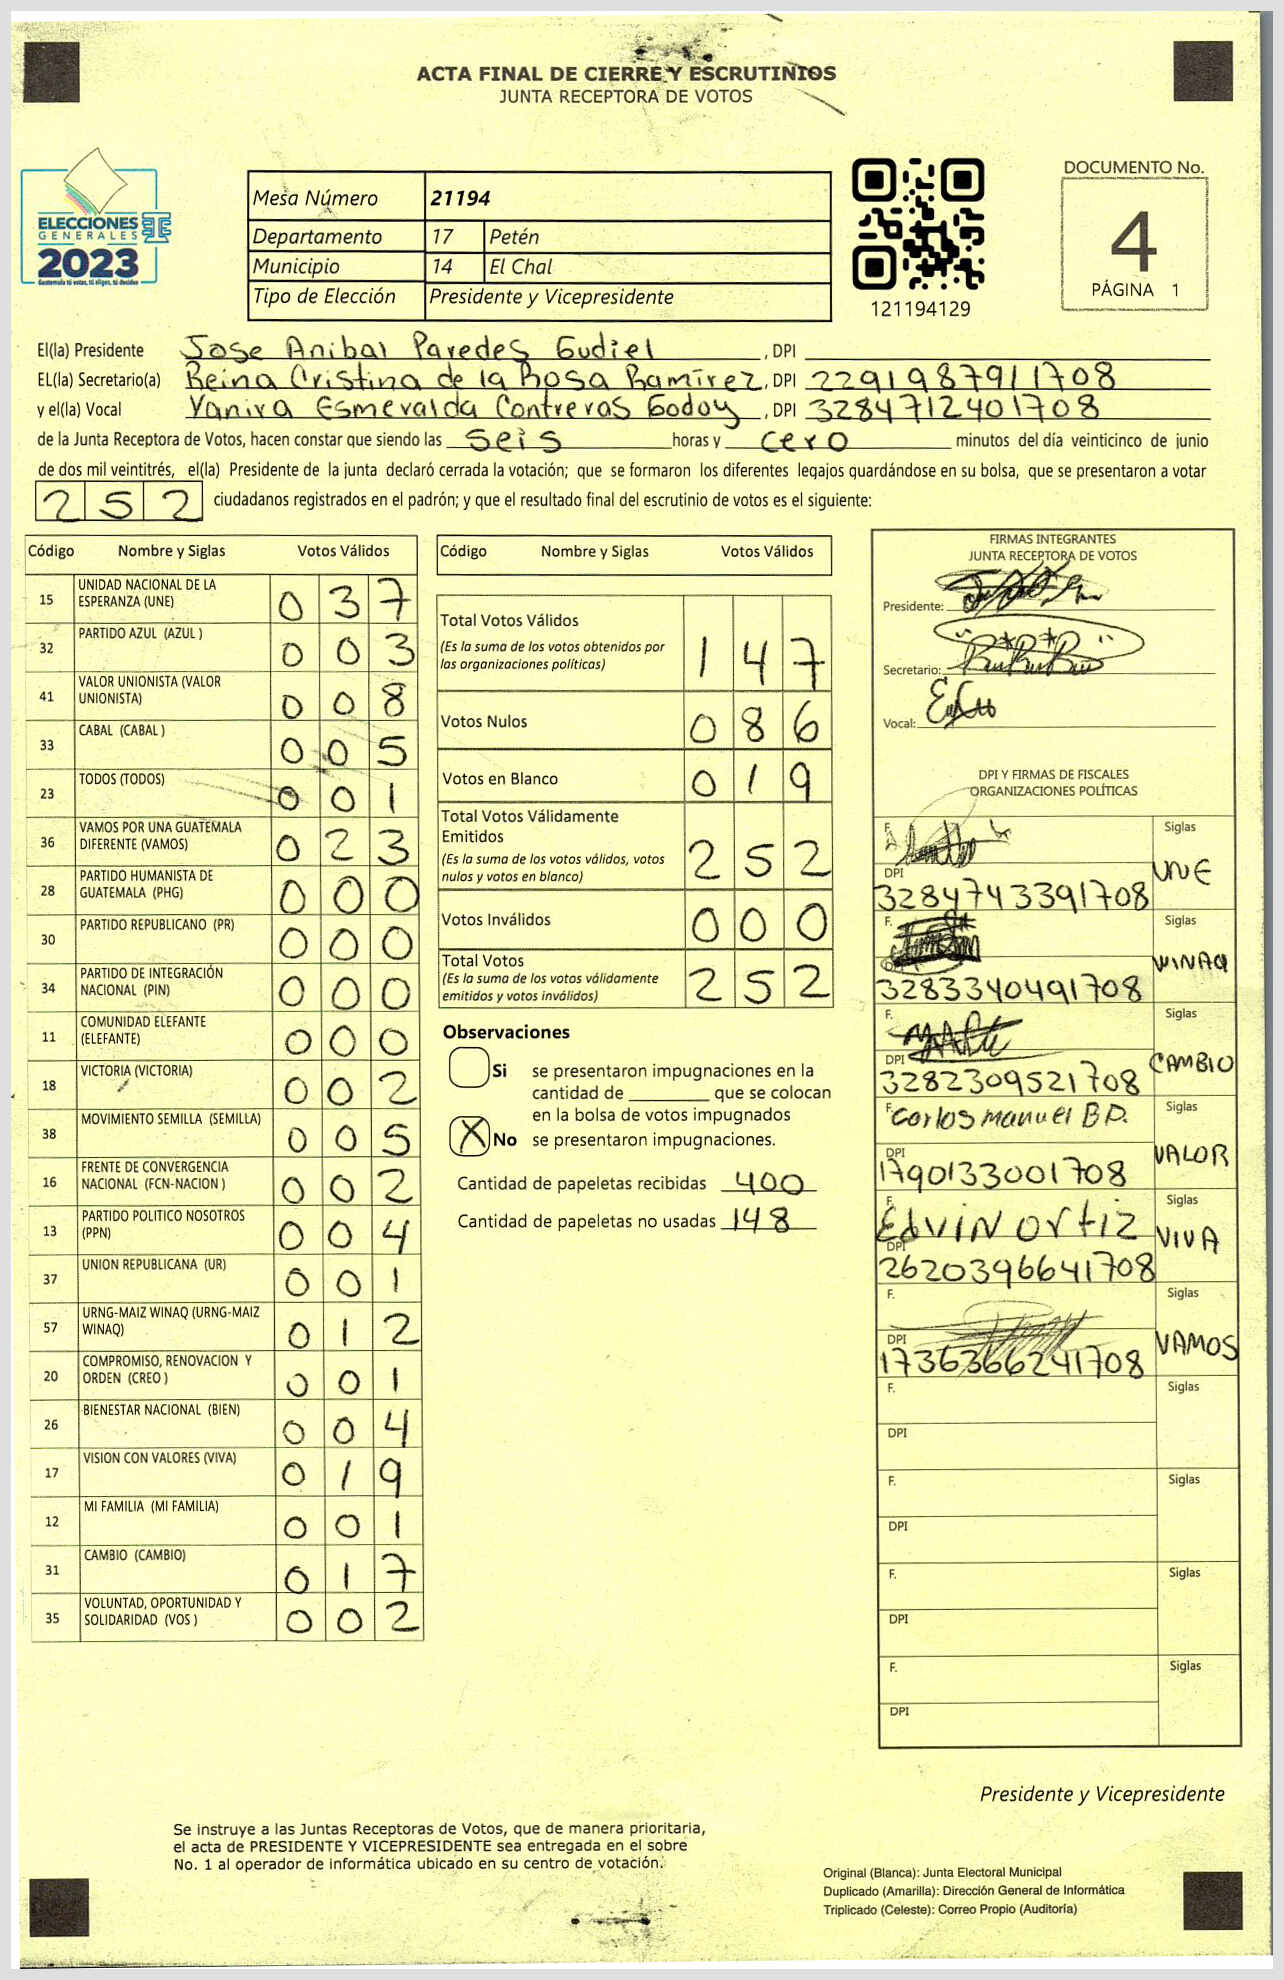 ACTA FINAL DE CIERRE Y ESCRUTINIOS
JUNTA RECEPTORA DE VOTOS
ELECCIONES
GENERALES
2023
Guatemala tú votas, tú eliges, tú decides
Mesa Número 21194
Departamento 17 Petén
Municipio 14 El Chal
Tipo de Elección Presidente y Vicepresidente
121194129
DOCUMENTO No.
4
PÁGINA 1
El(la) Presidente Jose Anibal Paredes Gudiel , DPI
EL(la) Secretario(a) Reina Cristina de la Rosa Ramirez, DPI 2291987911708
y el(la) Vocal Yanira Esmeralda Contreras Godoy , DPI 3284712401708
de la Junta Receptora de Votos, hacen constar que siendo las seis horas y cero minutos del día veinticinco de junio
de dos mil veintitrés, el(la) Presidente de la junta declaró cerrada la votación; que se formaron los diferentes legajos guardándose en su bolsa, que se presentaron a votar
252 ciudadanos registrados en el padrón; y que el resultado final del escrutinio de votos es el siguiente:
Código Nombre y Siglas Votos Válidos
15 UNIDAD NACIONAL DE LA ESPERANZA (UNE) 037
32 PARTIDO AZUL (AZUL ) 003
41 VALOR UNIONISTA (VALOR UNIONISTA) 008
33 CABAL (CABAL ) 005
23 TODOS (TODOS) 001
36 VAMOS POR UNA GUATEMALA DIFERENTE (VAMOS) 023
28 PARTIDO HUMANISTA DE GUATEMALA (PHG) 000
30 PARTIDO REPUBLICANO (PR) 000
34 PARTIDO DE INTEGRACIÓN NACIONAL (PIN) 000
11 COMUNIDAD ELEFANTE (ELEFANTE) 000
18 VICTORIA (VICTORIA) 002
38 MOVIMIENTO SEMILLA (SEMILLA) 005
16 FRENTE DE CONVERGENCIA NACIONAL (FCN-NACION ) 002
13 PARTIDO POLITICO NOSOTROS (PPN) 004
37 UNION REPUBLICANA (UR) 001
57 URNG-MAIZ WINAQ (URNG-MAIZ WINAQ) 012
20 COMPROMISO, RENOVACION Y ORDEN (CREO ) 001
26 BIENESTAR NACIONAL (BIEN) 004
17 VISION CON VALORES (VIVA) 019
12 MI FAMILIA (MI FAMILIA) 001
31 CAMBIO (CAMBIO) 017
35 VOLUNTAD, OPORTUNIDAD Y SOLIDARIDAD (VOS ) 002
Código Nombre y Siglas Votos Válidos
Total Votos Válidos 147
(Es la suma de los votos obtenidos por
las organizaciones políticas)
Votos Nulos 086
Votos en Blanco 019
Total Votos Válidamente
Emitidos 252
(Es la suma de los votos válidos, votos
nulos y votos en blanco)
Votos Inválidos 000
Total Votos 252
(Es la suma de los votos válidamente
emitidos y votos inválidos)
Observaciones
Si se presentaron impugnaciones en la
cantidad de ________ que se colocan
en la bolsa de votos impugnados
X No se presentaron impugnaciones.
Cantidad de papeletas recibidas 400
Cantidad de papeletas no usadas 148
FIRMAS INTEGRANTES
JUNTA RECEPTORA DE VOTOS
Presidente:
Secretario:
Vocal:
DPI Y FIRMAS DE FISCALES
ORGANIZACIONES POLÍTICAS
F. Siglas
DPI UNE
3284743391708
F. Siglas
DPI WINAQ
3283340491708
F. Siglas
DPI CAMBIO
3282309521708
F. Carlos Manuel B P. Siglas
DPI VALOR
1790133001708
F. Siglas
EdVIN Ortiz VIVA
DPI
2620396641708
F. Siglas
DPI VAMOS
1736366241708
F. Siglas
DPI
F. Siglas
DPI
F. Siglas
DPI
F. Siglas
DPI
Presidente y Vicepresidente
Se instruye a las Juntas Receptoras de Votos, que de manera prioritaria,
el acta de PRESIDENTE Y VICEPRESIDENTE sea entregada en el sobre
No. 1 al operador de informática ubicado en su centro de votación.
Original (Blanca): Junta Electoral Municipal
Duplicado (Amarilla): Dirección General de Informática
Triplicado (Celeste): Correo Propio (Auditoría)